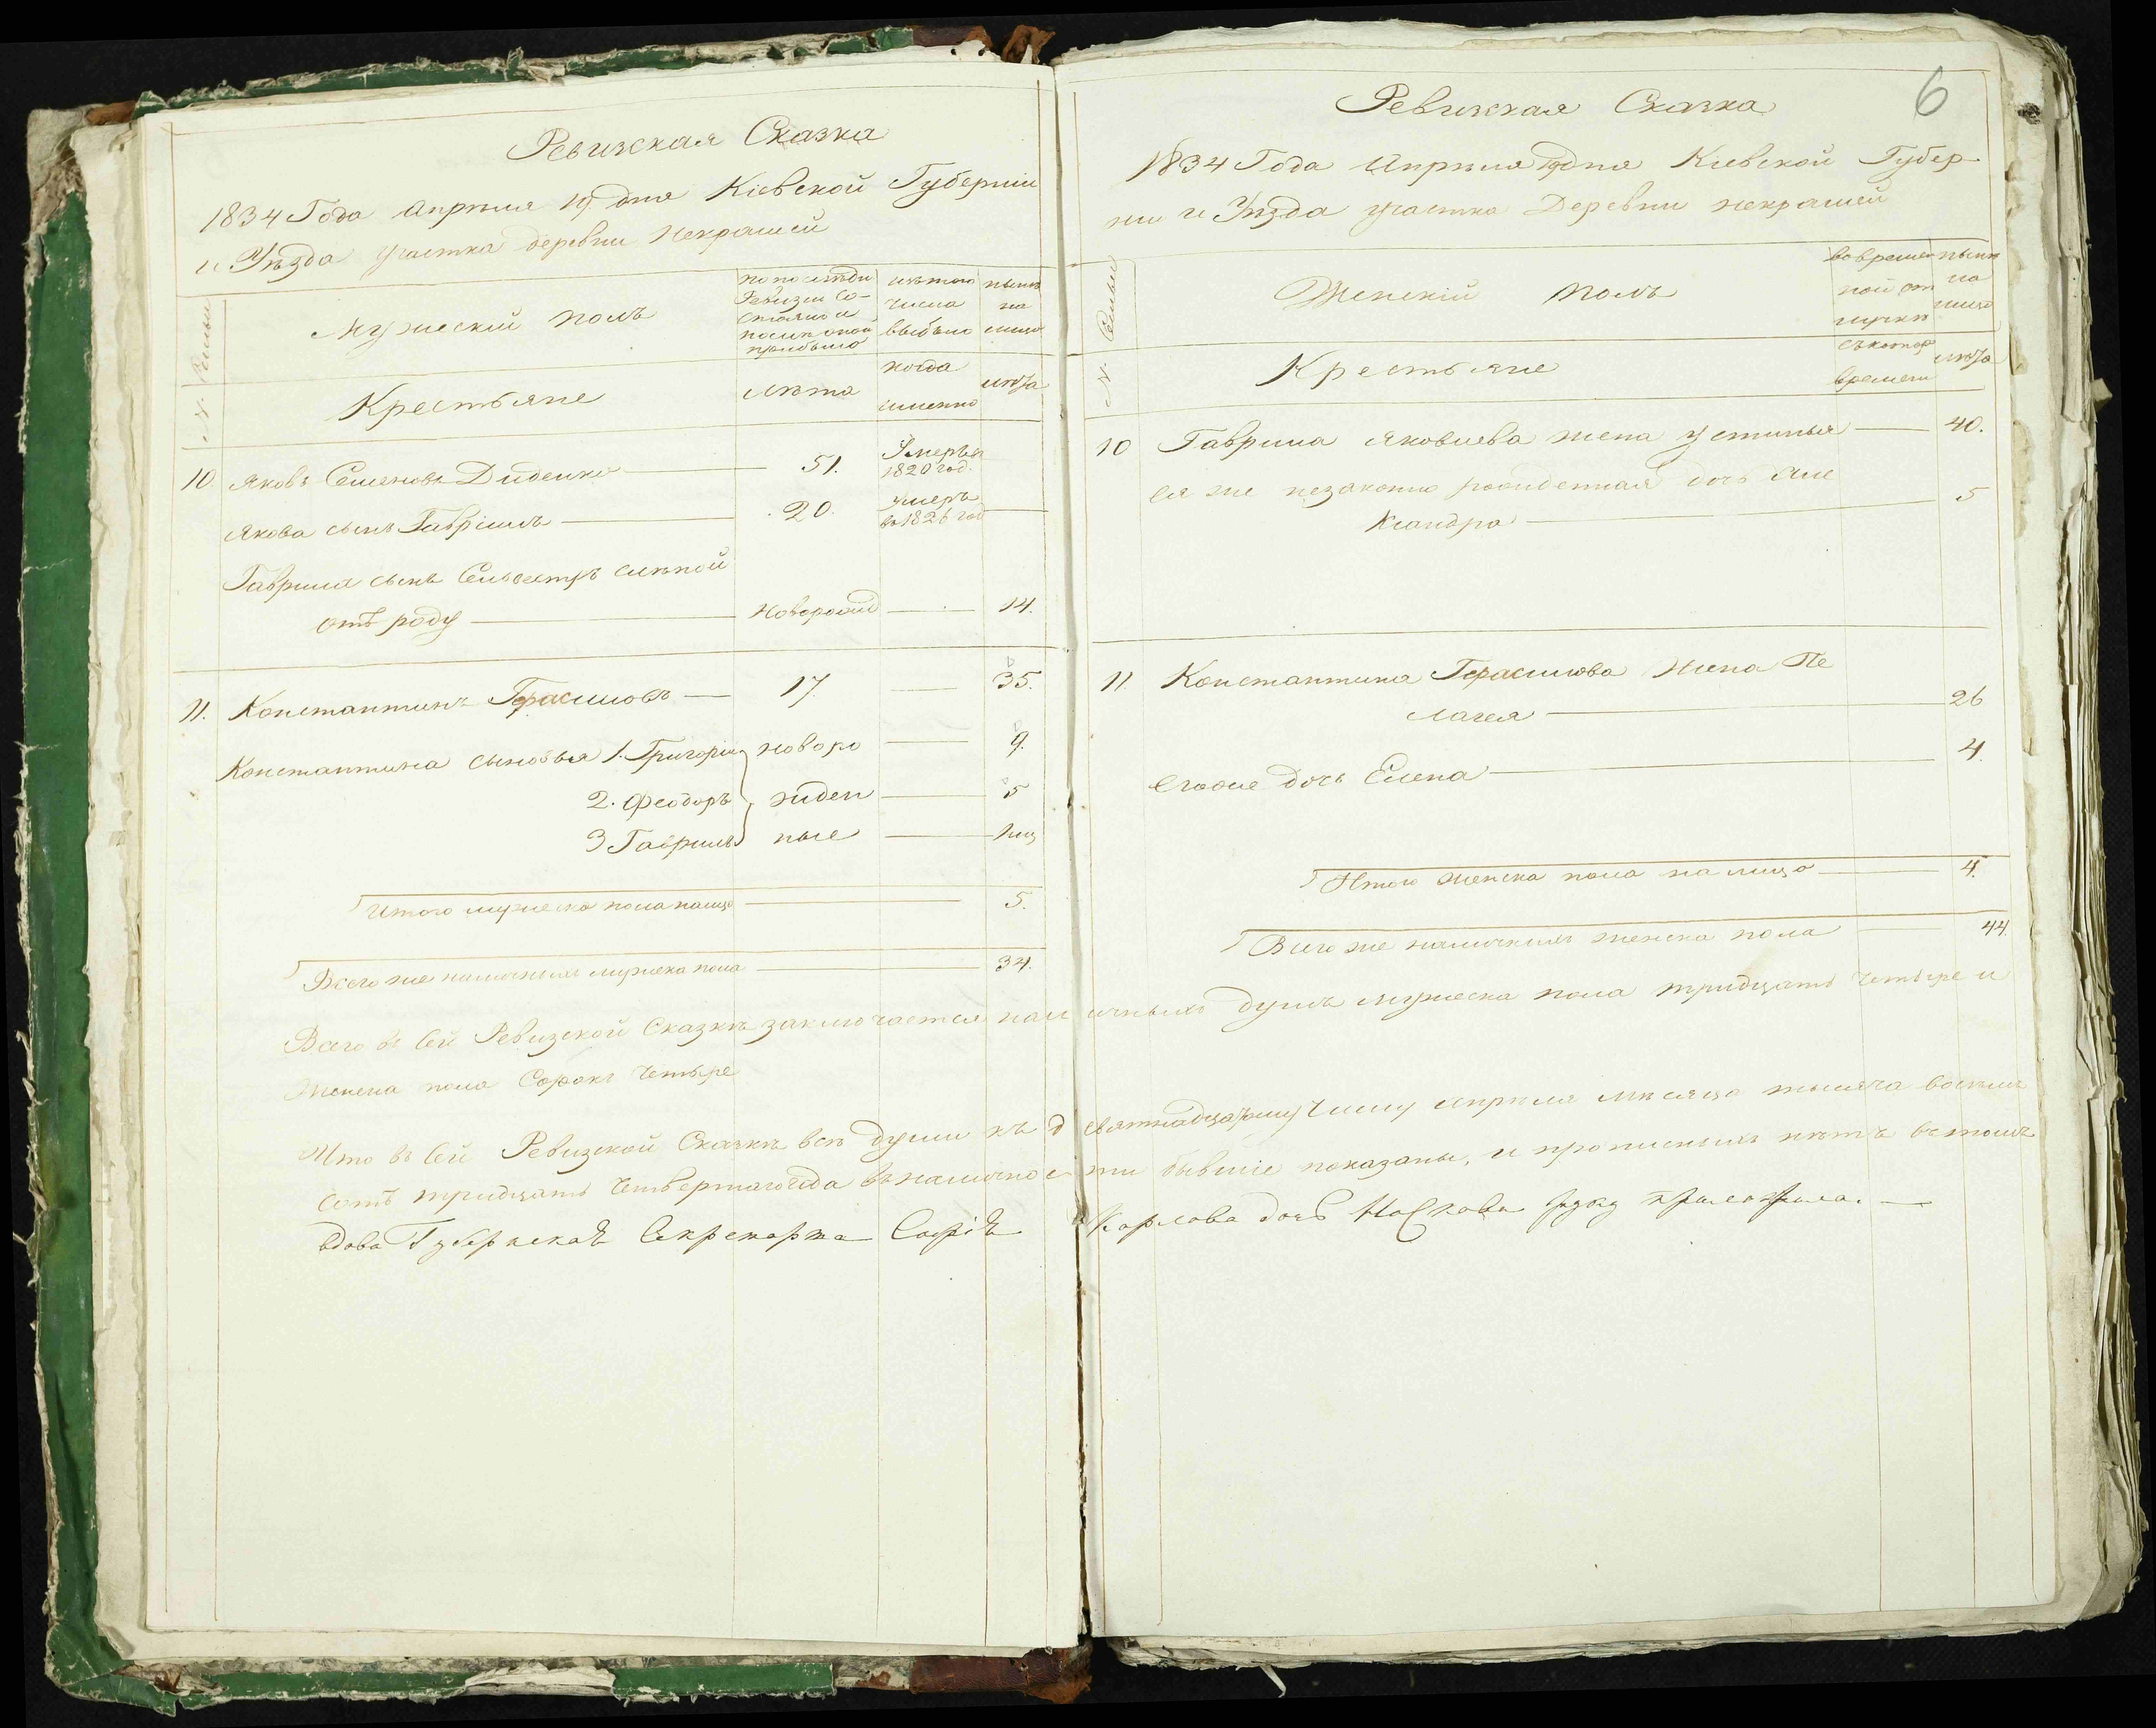 Ревизская Сказка
1834 Года Апреля 19. дня Кіевской Губерніи
и Уѣзда участка деревни Некрашей
№. Семьи
Мужескій полъ
по последн
Ревизіи Со-
стояло и
после оной
прибыло
изъ того
числа
выбыло
нынѣ
на
лицо
Крестьяне
лѣта
когда
именно
лѣта
10 Яковъ Семеновъ Диденко — 51. Умеръ въ
1820 год.
Якова сынъ Гаврiилъ — 20. умеръ
въ 1826 год
Гаврила сынъ Сильвестръ слѣпой
отъ роду — новорожд — 14.
11. Константинъ Герасимовъ — 17. — 35.
Константина сыновья 1. Григорій новоро — 9.
2. Феодоръ жден — 5
3 Гаврилъ ные —
Итого мужеска пола налицо — 5.
Всего же наличныхъ мужеска пола — 34.
6
Ревизская Сказка
1834 Года Апреля 19 дня Кіевской Губер-
ніи и Уѣзда участка Деревни Некрашей
№. Семьи
Женскій Полъ
во времен
ной от
лучкѣ
нынѣ
на
лицо
Крестьяне
съ котор
времени
лѣта
10 Гаврила Яковлева жена Устинья — 40.
ея же незаконно рожденная дочь Але
ксандра — 5
11. Константина Герасимова жена Пе
лагея — 26
Егоже дочь Елена — 4.
Итого женска пола на лицо — 4.
Всего же наличныхъ женска пола — 44.
Всего въ сей Ревизской Сказкѣ заключается наличныхъ душъ мужеска пола тридцать четыре и
женска пола Сорокъ четыре
Что въ сей Ревизской Сказкѣ всѣ души къ девятнадцатому числу апреля мѣсяца тысяча восемь
сотъ тридцать четвертаго года въ наличности бывшіе показаны, и прописныхъ нѣтъ въ томъ
вдова Губернская Секретарша Софія Карлова дочь руку приложила. —